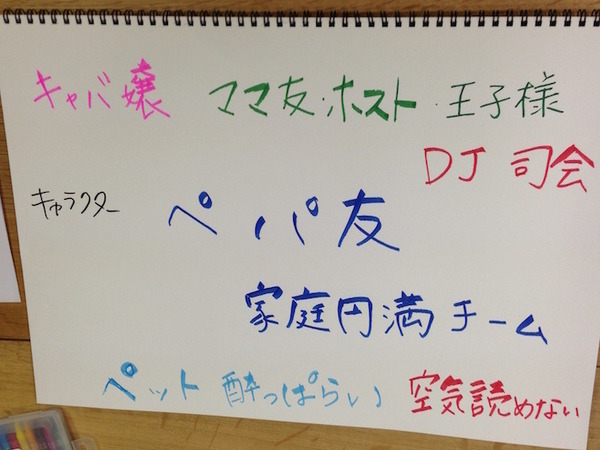 キャバ嬢 ママ友・ホスト・王子様
DJ 司会
キャラクター ペ パパ友
家庭円満チーム
ペット 酔っぱらい 空気読めない